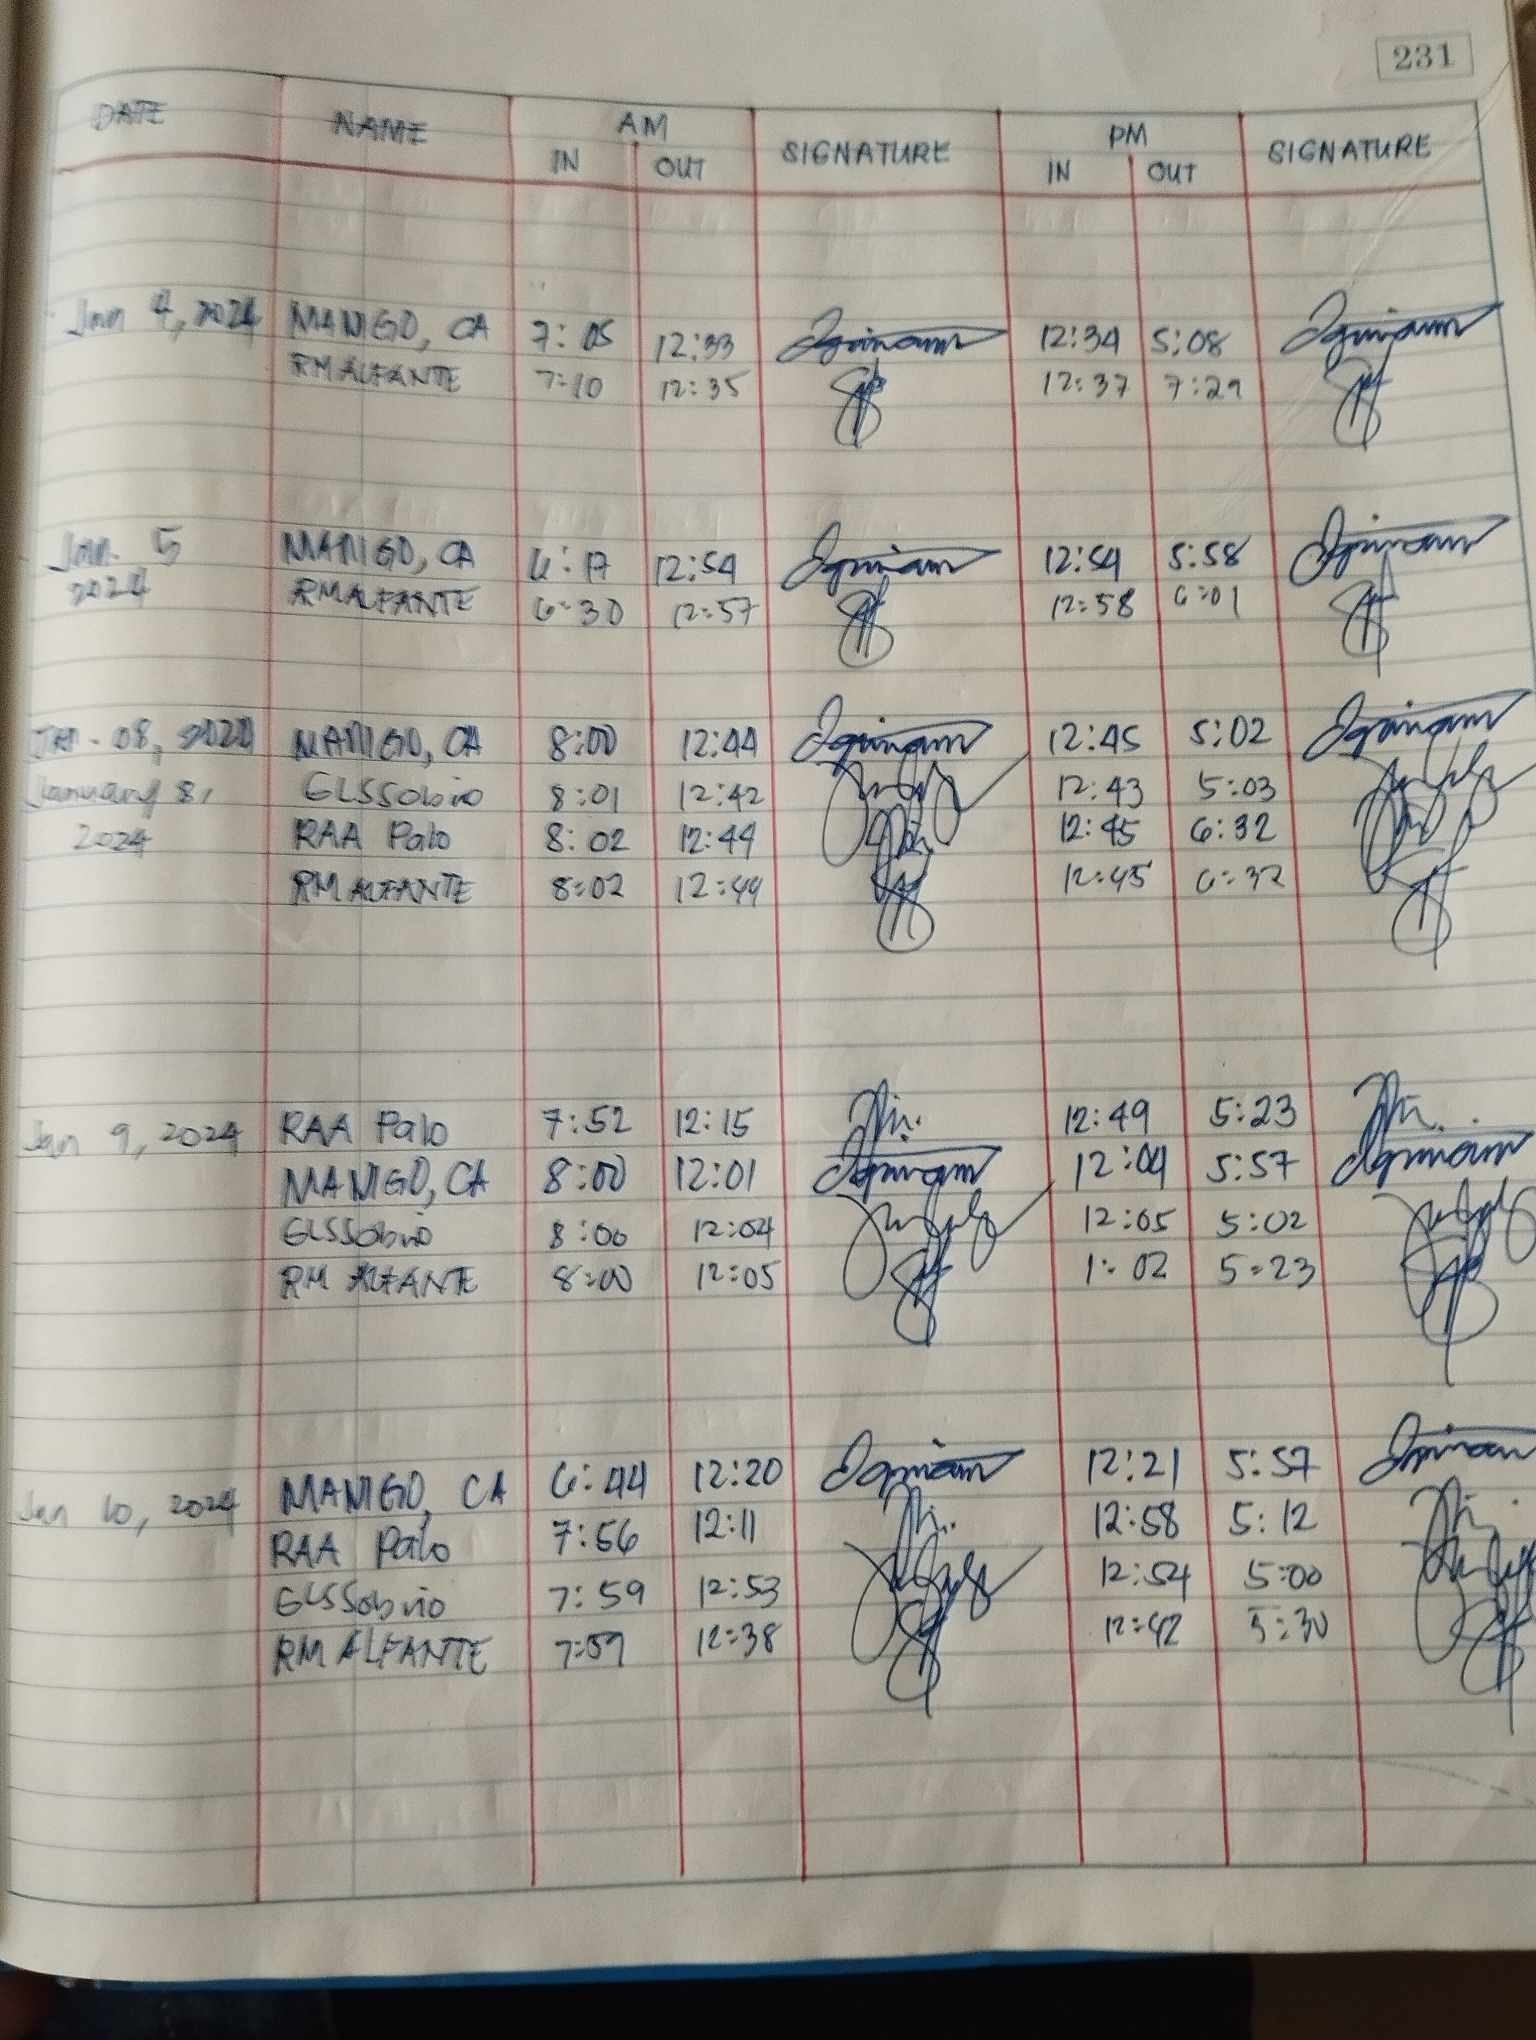 231
DATE NAME AM SIGNATURE PM SIGNATURE
IN OUT IN OUT
Jan 4, 2024 MANIGO, CA 7:05 12:33 12:34 5:08
RM ALFANTE 7:10 12:35 12:37 7:29
Jan. 5 MANIGO, CA 6:17 12:54 12:54 5:58
2024 RM ALFANTE 6:30 12:57 12:58 6:01
JAN. 08, 2024 MANIGO, CA 8:00 12:44 12:45 5:02
January 8, GLSSobrio 8:01 12:42 12:43 5:03
2024 RAA Palo 8:02 12:44 12:45 6:32
RM ALFANTE 8:02 12:44 12:45 6:32
Jan 9, 2024 RAA Palo 7:52 12:15 12:49 5:23
MANIGO, CA 8:00 12:01 12:04 5:57
GLSSobrio 8:00 12:04 12:05 5:02
RM ALFANTE 8:00 12:05 1:02 5:23
Jan 10, 2024 MANIGO, CA 6:44 12:20 12:21 5:57
RAA Palo 7:56 12:11 12:58 5:12
GLSSobrio 7:59 12:53 12:54 5:00
RM ALFANTE 7:59 12:38 12:42 5:30